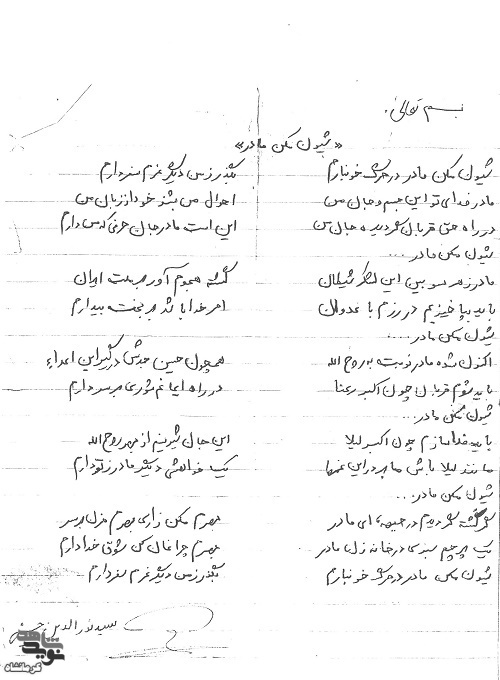 بسم تعالی
«شیون مکن مادر»
شیون مکن مادر در مرگ خونبارم بگذر ز من دیگر عزم سفر دارم
مادر فدای تو این جسم و جان من احوال من بشنو خود از زبان من
در راه حق قربان گردیده جان من این است مادر جان حرفی که من دارم
شیون مکن مادر ...
مادر ز هر سو بین این لشکر شیطان گشته هجوم آور بر ملت ایران
باید بپا خیزیم در رزم با عدوان امر خدا باشد بر بخت بیدارم
شیون مکن مادر ...
اکنون شده مادر نوبت به روح الله همچون حسین جدش درگیر این اعداء
باید شوم قربان چون اکبر رعنا در راه ایمانم شوری به سر دارم
شیون مکن مادر ...
باید فدا سازم چون اکبر لیلا این جان شیرینم از بهر روح الله
مانند لیلا باش مادر در این غمها یک خواهشی دیگر مادر ز تو دارم
شیون مکن مادر ...
گر کشته گردیدم در جبهه ای مادر بهرم مکن زاری بهرم مزن بر سر
یک پرچم سبزی در خانه زن مادر بهرم چراغان کن شوق خدا دارم
شیون مکن مادر در مرگ خونبارم بگذر ز من دیگر عزم سفر دارم
سید نورالدین
نوید شاهد
کرمانشاه